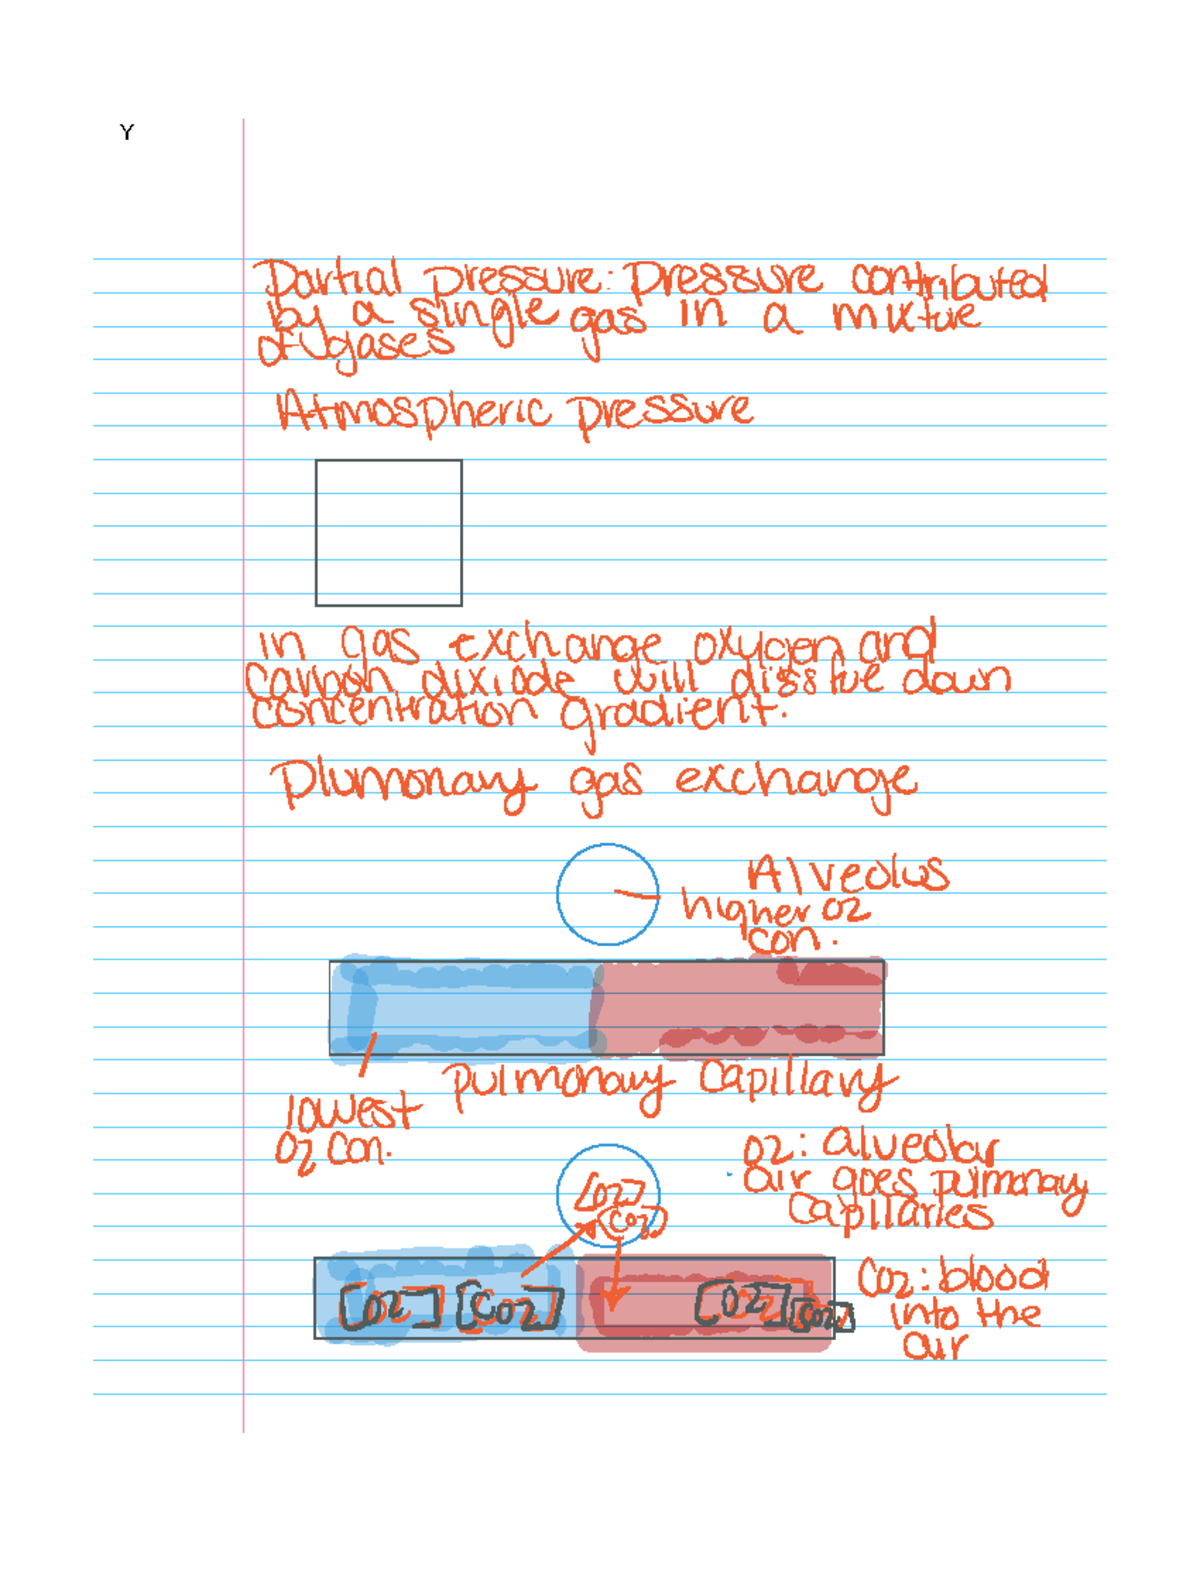 Y
Partial pressure: Pressure contributed
by a single gas in a mixture
of gases
Atmospheric pressure
in gas exchange oxygen and
carbon dixiode will down
concentration gradient.
Plumonary gas exchange
Alveolus
higher O2
con.
pulmonary capillary
lowest
O2 con.
O2: alveolar
air goes pulmonary
capillaries
[O2]
[CO2]
[O2] [CO2]
[O2] [CO2]
CO2: blood
into the
air